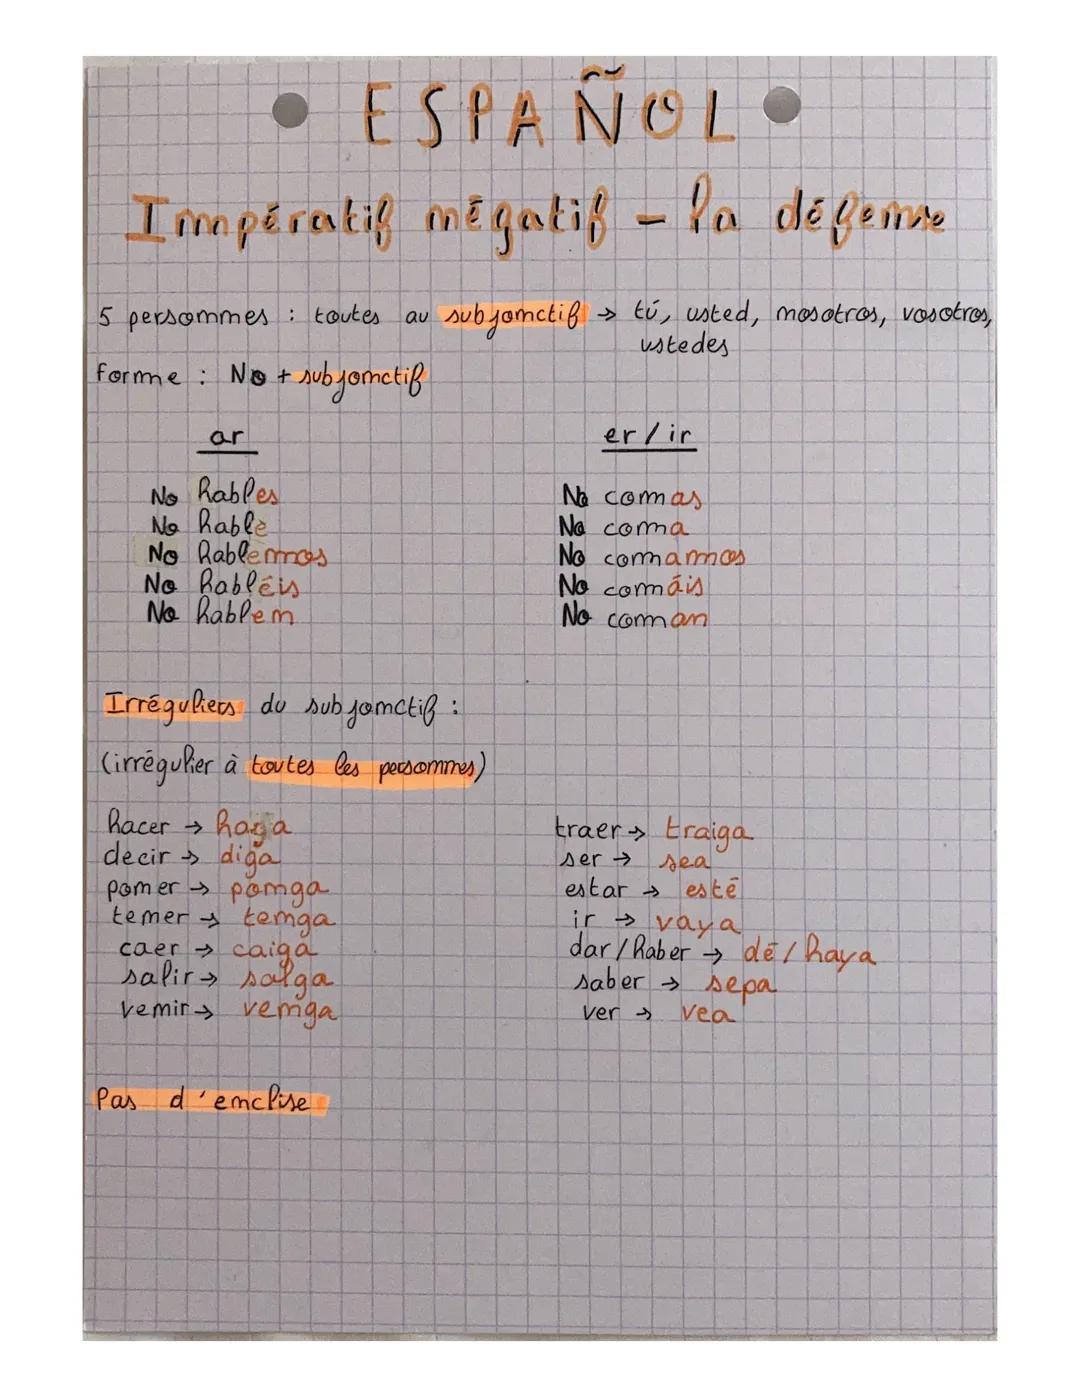 ESPAÑOL
Impératif négatif - la défense
5 personnes : toutes au subjonctif → tú, usted, nosotros, vosotros,
ustedes
forme : No + subjonctif
ar
No hables
No hable
No hablemos
No habléis
No hablen
er / ir
No comas
No coma
No comamos
No comáis
No coman
Irréguliers du subjonctif :
(irrégulier à toutes les personnes)
hacer → haga
decir → diga
poner → ponga
tener → tenga
caer → caiga
salir → salga
venir → venga
traer → traiga
ser → sea
estar → esté
ir → vaya
dar / haber → dé / haya
saber → sepa
ver → vea
Pas d'enclise